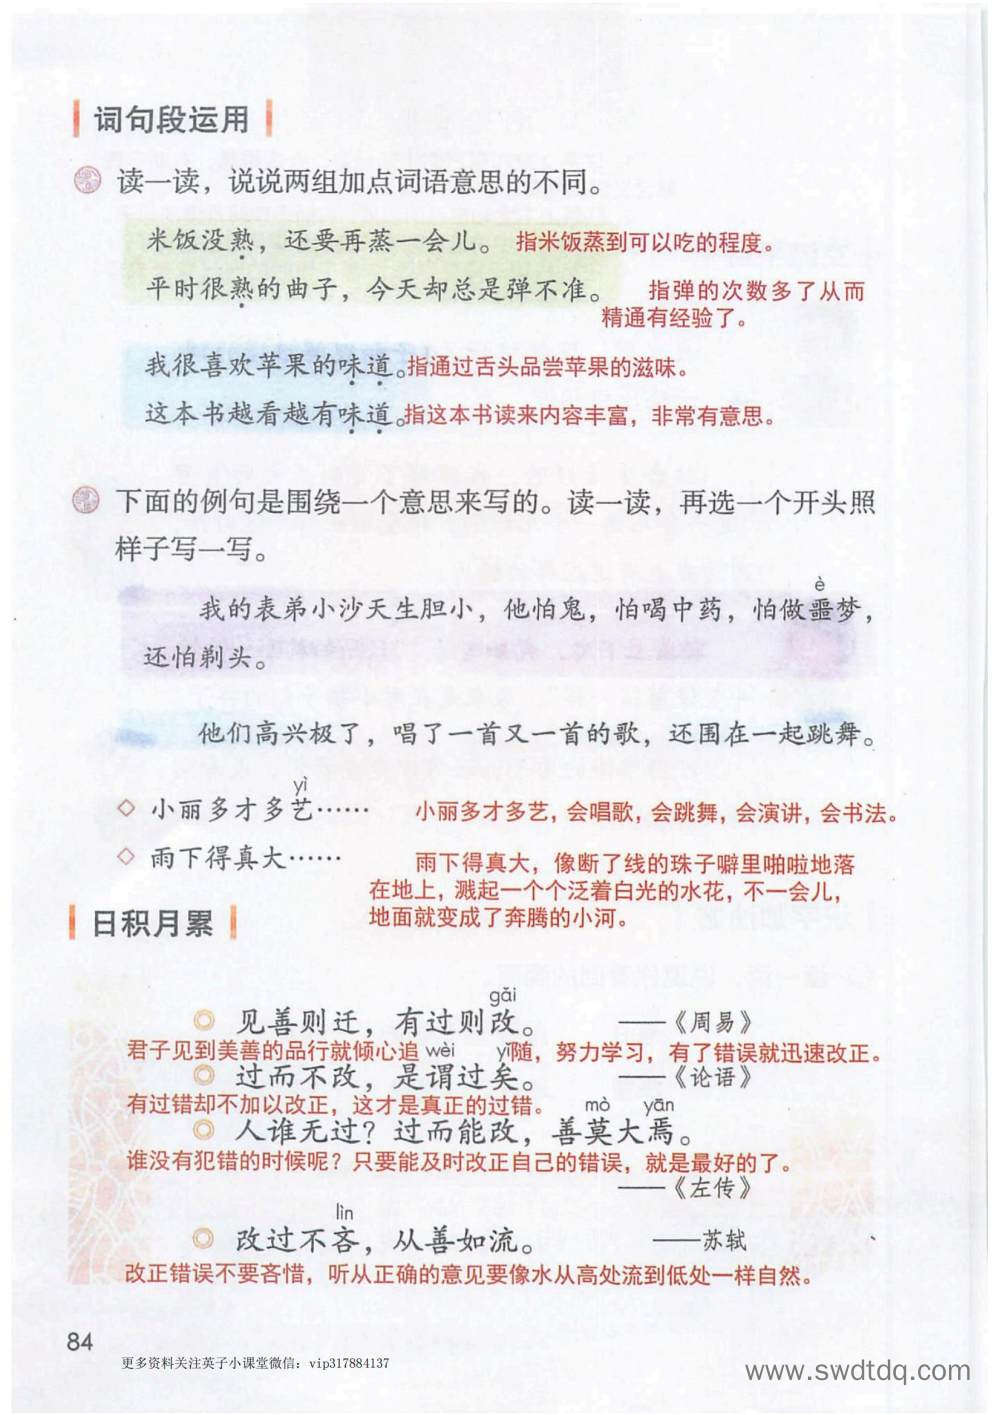 词句段运用
读一读，说说两组加点词语意思的不同。
米饭没熟，还要再蒸一会儿。 指米饭蒸到可以吃的程度。
平时很熟的曲子，今天却总是弹不准。 指弹的次数多了从而
精通有经验了。
我很喜欢苹果的味道。指通过舌头品尝苹果的滋味。
这本书越看越有味道。指这本书读来内容丰富，非常有意思。
下面的例句是围绕一个意思来写的。读一读，再选一个开头照
样子写一写。
è
我的表弟小沙天生胆小，他怕鬼，怕喝中药，怕做噩梦，
还怕剃头。
他们高兴极了，唱了一首又一首的歌，还围在一起跳舞。
yì
◇ 小丽多才多艺…… 小丽多才多艺，会唱歌，会跳舞，会演讲，会书法。
◇ 雨下得真大…… 雨下得真大，像断了线的珠子噼里啪啦地落
在地上，溅起一个个泛着白光的水花，不一会儿，
地面就变成了奔腾的小河。
日积月累
gǎi
见善则迁，有过则改。 ——《周易》
君子见到美善的品行就倾心追 wèi yǐ随，努力学习，有了错误就迅速改正。
过而不改，是谓过矣。 ——《论语》
有过错却不加以改正，这才是真正的过错。 mò yān
人谁无过？过而能改，善莫大焉。
谁没有犯错的时候呢？只要能及时改正自己的错误，就是最好的了。
——《左传》
lìn
改过不吝，从善如流。 ——苏轼
改正错误不要吝惜，听从正确的意见要像水从高处流到低处一样自然。
84
更多资料关注英子小课堂微信：vip317884137
www.swdtdq.com